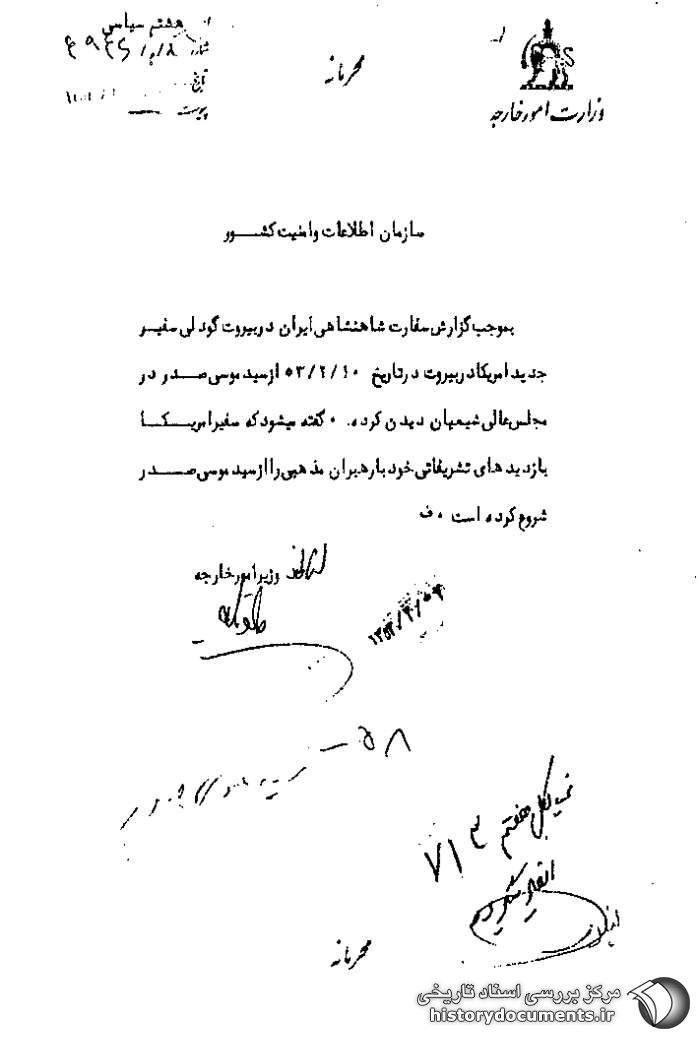 هشتم سیاسی
شماره
تاریخ
پیوست
محرمانه
وزارت امور خارجه
سازمان اطلاعات و امنیت کشـــور
بموجب گزارش سفارت شاهنشاهی ایران در بیروت گود لی سفیـر
جدید امریکا در بیروت در تاریخ ۵۳/۲/۱۰ از سید موسی صــدر در
مجلس عالی شیعیان دیدن کرده. گفته میشود که سفیر امریــکــا
بازدید های تشریفاتی خود با رهبران مذهبی را از سید موسی صــدر
شروع کرده است ۰ ف
وزیر امور خارجه
۵۸ –
هفتم
۷۱۳
محرمانه
مرکز بررسی اسناد تاریخی
historydocuments.ir